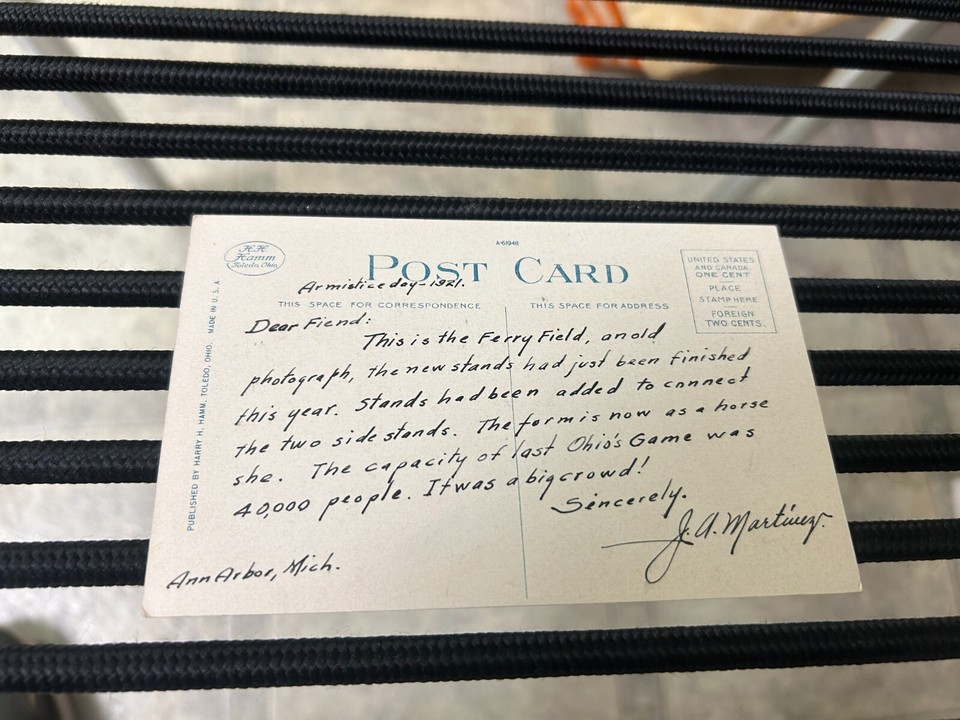 H.H.
Hamm
Toledo, Ohio
A-61948
POST CARD
Armistice day-1921.
THIS SPACE FOR CORRESPONDENCE
THIS SPACE FOR ADDRESS
UNITED STATES
AND CANADA
ONE CENT
PLACE
STAMP HERE
FOREIGN
TWO CENTS.
PUBLISHED BY HARRY H. HAMM, TOLEDO, OHIO. MADE IN U.S.A
Dear Fiend:
This is the Ferry Field, an old
photograph, the new stands had just been finished
this year. Stands had been added to connect
the two side stands. The form is now as a horse
she. The capacity of last Ohio's Game was
40,000 people. It was a big crowd!
Sincerely.
J. A. Martínez.
Ann Arbor, Mich.